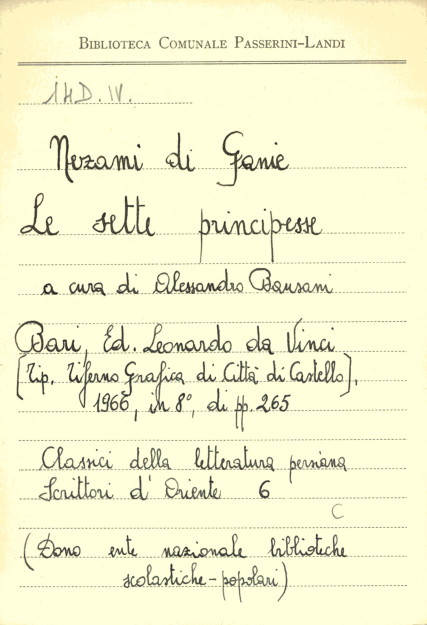 BIBLIOTECA COMUNALE PASSERINI-LANDI
I4D.IV.
Nezami di Ganie
Le sette principesse
a cura di Alessandro Bausani
Bari, Ed. Leonardo da Vinci
[Tip. Tiferno Grafica di Città di Castello],
1966, in 8°, di pp. 265
Classici della letteratura persiana
Scrittori d' Oriente 6
C
(Dono ente nazionale biblioteche
scolastiche-popolari)